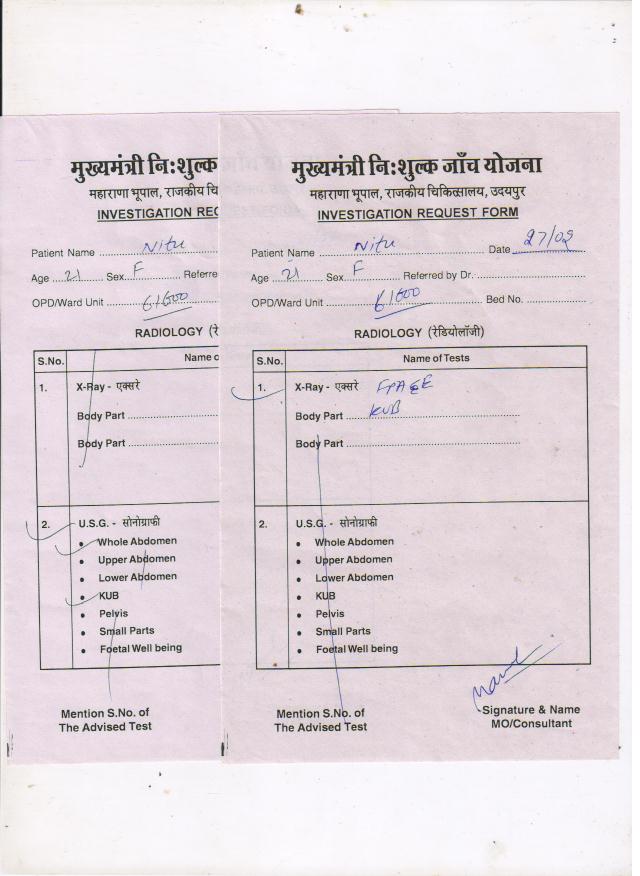 मुख्यमंत्री निःशुल्क
महाराणा भूपाल, राजकीय चि
INVESTIGATION REC
Patient Name Nitu
Age 21 Sex F Referre
OPD/Ward Unit 61600
RADIOLOGY (रे
S.No. Name o
1. X-Ray - एक्सरे
Body Part
Body Part
2. U.S.G. - सोनोग्राफी
• Whole Abdomen
• Upper Abdomen
• Lower Abdomen
• KUB
• Pelvis
• Small Parts
• Foetal Well being
Mention S.No. of
The Advised Test
मुख्यमंत्री निःशुल्क जाँच योजना
महाराणा भूपाल, राजकीय चिकित्सालय, उदयपुर
INVESTIGATION REQUEST FORM
Patient Name Nitu Date 27/09
Age 21 Sex F Referred by Dr.
OPD/Ward Unit 61600 Bed No.
RADIOLOGY (रेडियोलॉजी)
S.No. Name of Tests
1. X-Ray - एक्सरे
Body Part KUB
Body Part
2. U.S.G. - सोनोग्राफी
• Whole Abdomen
• Upper Abdomen
• Lower Abdomen
• KUB
• Pelvis
• Small Parts
• Foetal Well being
Mention S.No. of
The Advised Test
Signature & Name
MO/Consultant